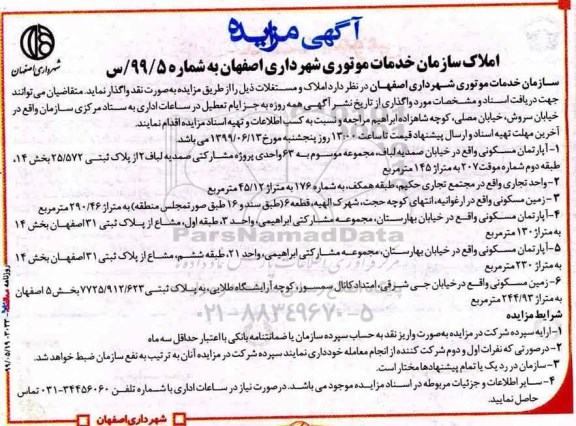 آگهی مزایده
شهرداری اصفهان
املاک سازمان خدمات موتوری شهرداری اصفهان به شماره ۹۹/۵/س
سازمان خدمات موتوری شهرداری اصفهان در نظر دارد املاک و مستغلات ذیل را از طریق مزایده به صورت نقد واگذار نماید. متقاضیان می توانند
جهت دریافت اسناد و مشخصات مورد واگذاری از تاریخ نشر آگهی همه روزه به جز ایام تعطیل در ساعات اداری به ستاد مرکزی سازمان واقع در
خیابان سروش، خیابان مصلی، کوچه شاهزاده ابراهیم مراجعه و نسبت به کسب اطلاعات و تهیه اسناد مزایده اقدام نمایند.
آخرین مهلت تهیه اسناد و ارسال پیشنهاد قیمت تا ساعت ۱۳:۰۰ روز پنجشنبه مورخ ۱۳۹۹/۰۶/۱۳ می باشد.
۱- آپارتمان مسکونی واقع در خیابان صمدیه لباف، مجموعه موسوم به ۶۳ واحدی پروژه مشارکتی صمدیه لباف ۲ از پلاک ثبتی ۲۵/۵۷۲ بخش ۱۴،
طبقه دوم شماره موقت ۲۰۷ به متراژ ۱۴۵ مترمربع
۲- واحد تجاری واقع در مجتمع تجاری حکیم، طبقه همکف، به شماره ۱۷۶ به متراژ ۴۵/۱۲ مترمربع
۳- زمین مسکونی واقع در ارغوانیه، انتهای کوچه حجت، شهرک الهیه، قطعه ۶ (طبق سند و ۱۶ طبق صورتمجلس منطقه) به متراژ ۲۹۰/۴۶ مترمربع
۴- آپارتمان مسکونی واقع در خیابان بهارستان، مجموعه مشارکتی ابراهیمی، واحد ۳، طبقه اول، مشاع از پلاک ثبتی ۳۱ اصفهان بخش ۱۴
به متراژ ۱۳۰ مترمربع
۵- آپارتمان مسکونی واقع در خیابان بهارستان، مجموعه مشارکتی ابراهیمی، واحد ۲۱، طبقه ششم، مشاع از پلاک ثبتی ۳۱ اصفهان بخش ۱۴
به متراژ ۲۳۰ مترمربع
۶- زمین مسکونی واقع در خیابان جی شرقی، امتداد کانال سمسور، کوچه آرایشگاه طلایی، به پلاک ثبتی ۷۷۲۵/۹۱۲/۶۲۳ بخش ۵ اصفهان
به متراژ ۲۴۴/۹۳ مترمربع
شرایط مزایده
۱- ارایه سپرده شرکت در مزایده به صورت واریز نقد به حساب سپرده سازمان یا ضمانتنامه بانکی با اعتبار حداقل سه ماه
۲- درصورتی که نفرات اول و دوم شرکت کننده از انجام معامله خودداری نمایند سپرده شرکت در مزایده آنان به ترتیب به نفع سازمان ضبط خواهد شد.
۳- سازمان در رد یک یا تمام پیشنهادها مختار است.
۴- سایر اطلاعات و جزئیات مربوطه در اسناد مزایده موجود می باشد. درصورت نیاز در ساعات اداری با شماره تلفن ۳۴۴۵۶۰۶۰-۰۳۱ تماس
حاصل نمایید.
شهرداری اصفهان
ParsNamadData
۰۲۱-۸۸۳۴۹۶۷۰-۵